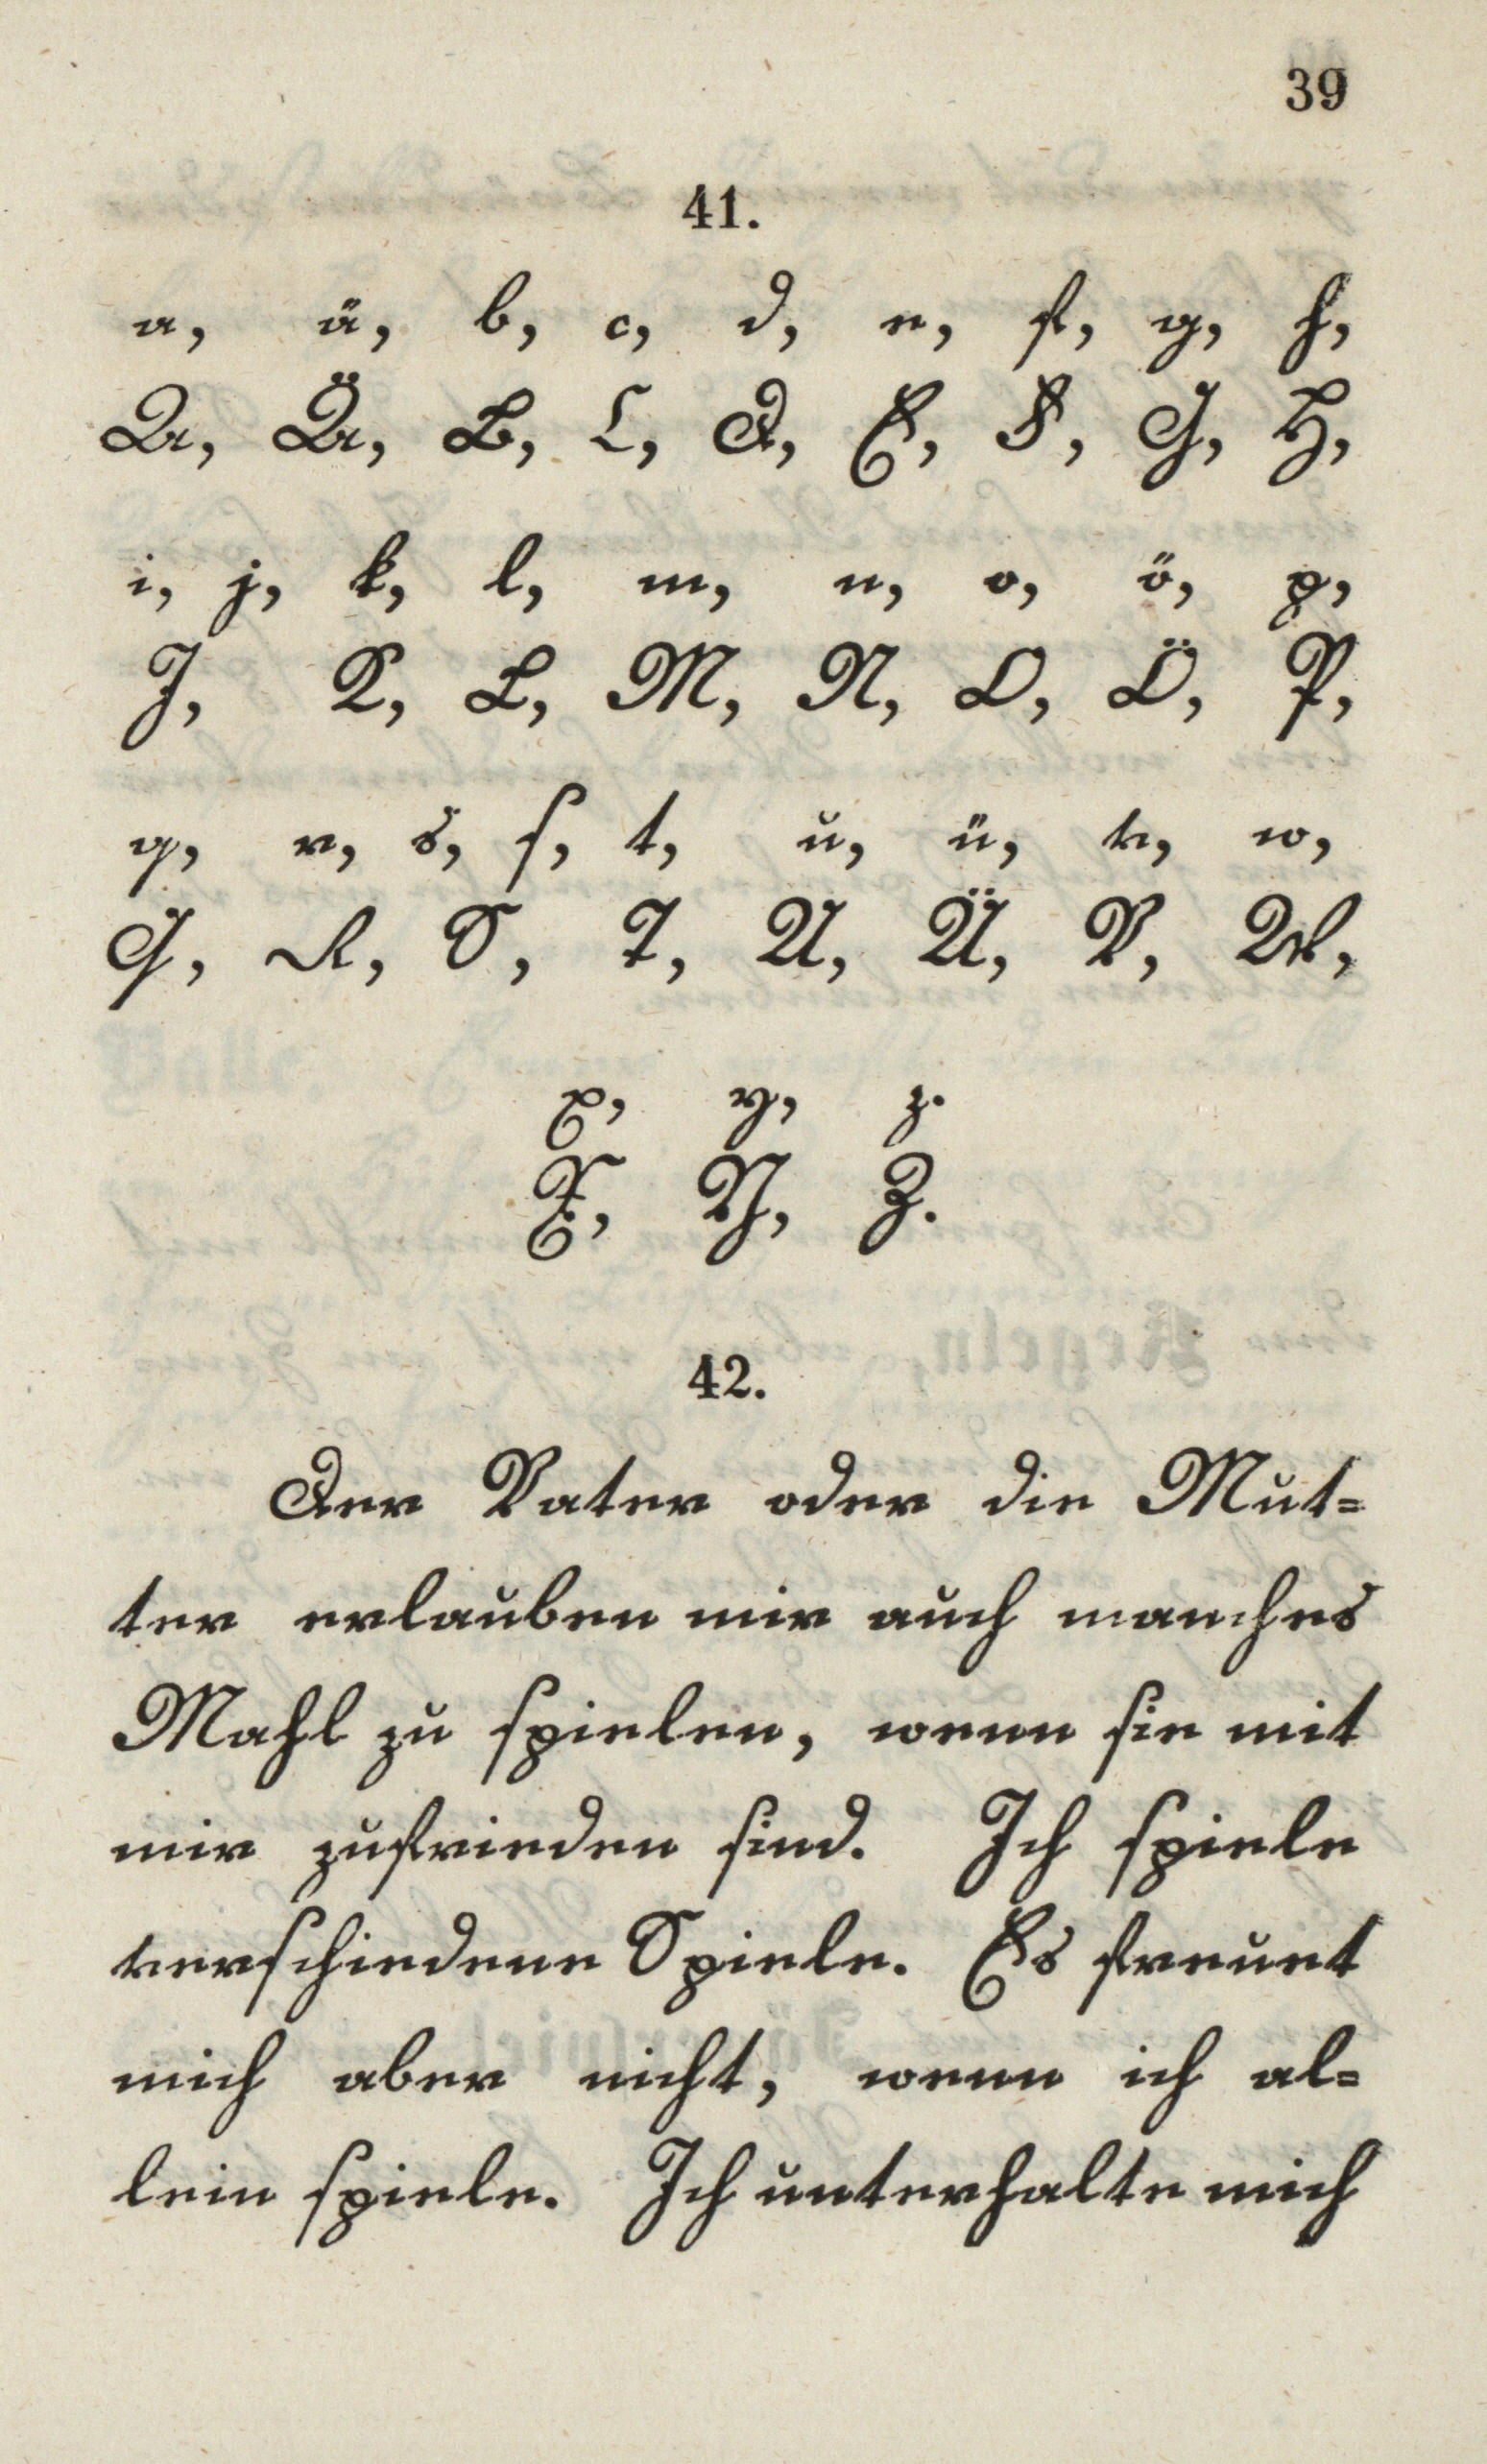 39
41.
a, ä, b, c, d, e, f, g, h,
A, Ä, B, C, D, E, F, G, H,
i, j, k, l, m, n, o, ö, p,
J, K, L, M, N, O, Ö, P,
q, r, s, ſ, t, u, ü, v, w,
Q, R, S, T, U, Ü, V, W,
x, y, z.
X, Y, Z.
42.
Der Vater oder die Mut=
ter erlauben mir auch manches
Mahl zu ſpielen, wenn ſie mit
mir zufrieden ſind. Ich ſpiele
verſchiedene Spiele. Es freuet
mich aber nicht, wenn ich al=
lein ſpiele. Ich unterhalte mich